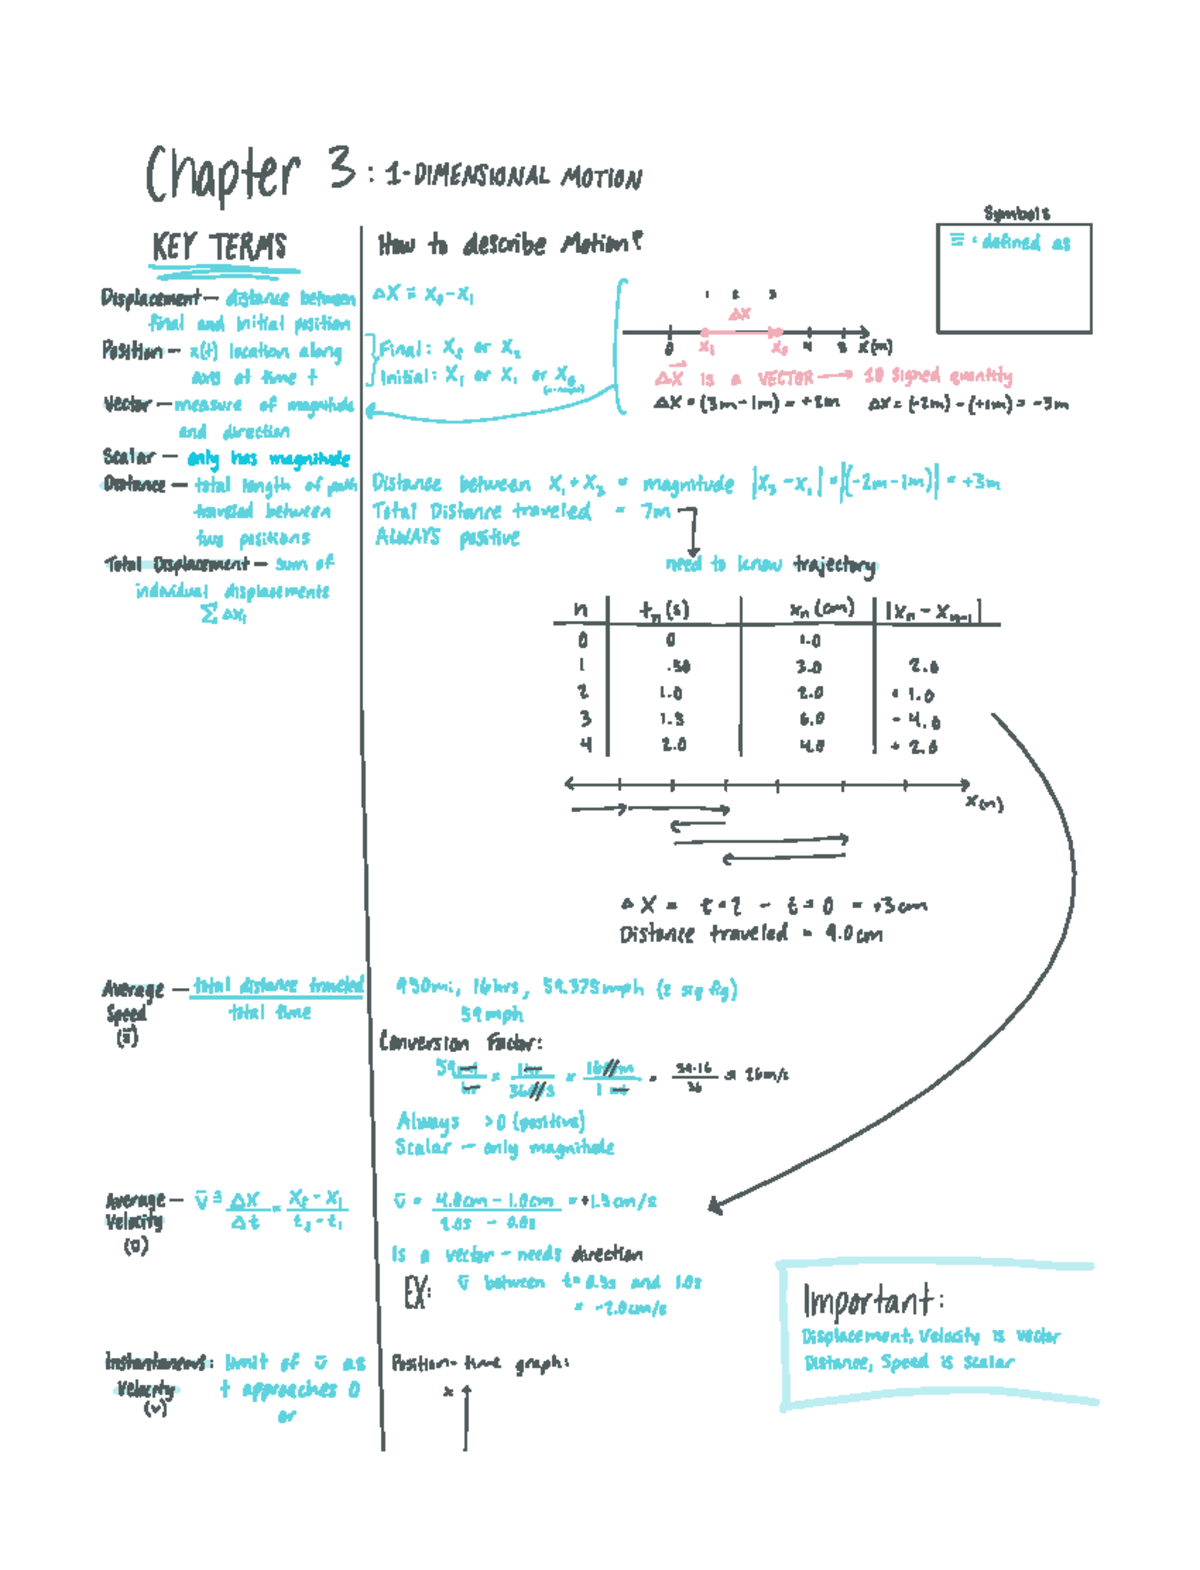 Chapter 3: 1-DIMENSIONAL MOTION
Symbols
≡ : defined as
KEY TERMS
How to describe Motion?
Displacement — distance between
final and initial position
Position — x(t) location along
axis at time t
Vector — measure of magnitude
and direction
Scalar — only has magnitude
Distance — total length of path
traveled between
two positions
Total Displacement — sum of
individual displacements
Σ ΔXi
ΔX ≡ Xf - Xi
Final: Xf or X2
Initial: Xi or X1 or X0
1 2 3
ΔX
0 Xi Xf 4 5 X(m)
ΔX is a VECTOR → 1D signed quantity
ΔX = (3m - 1m) = +2m ΔX = (-2m) - (+1m) = -3m
Distance between X1 + X3 = magnitude |X3 - X1| = |(-2m - 1m)| = +3m
Total Distance traveled = 7m
ALWAYS positive
need to know trajectory
n tn (s) xn (cm) |Xn - Xn-1|
0 0 1.0
1 .50 3.0 2.0
2 1.0 2.0 + 1.0
3 1.5 6.0 - 4.0
4 2.0 4.0 + 2.0
X(m)
ΔX = t=2 - t=0 = +3cm
Distance traveled = 9.0cm
Average Speed — total distance traveled
total time
950mi, 16hrs, 59.375mph (2 sig fig)
59mph
Conversion Factor:
59 mi/hr × 1hr/3600s × 1600m/1 mi = 59·16/36 = 26m/s
Always >0 (positive)
Scalar — only magnitude
Average Velocity — v̄ ≡ ΔX/Δt = Xf - Xi/tf - ti
v̄ = 4.0cm - 1.0cm/2.0s - 0.0s = +1.5cm/s
Is a vector - needs direction
EX: v̄ between t=0.5s and 1.0s
= -2.0cm/s
Important:
Displacement, Velocity is vector
Distance, Speed is scalar
Instantaneous: limit of v̄ as
Velocity t approaches 0
(v)
or
Position-time graph:
x